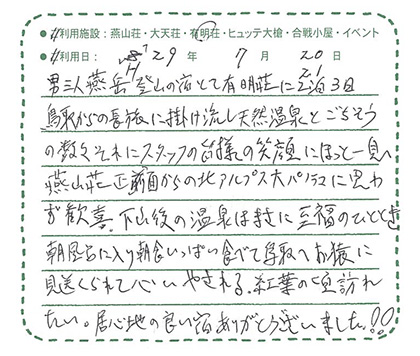 ●ご利用施設：燕山荘・大天荘・有明荘・ヒュッテ大槍・合戦小屋・イベント
●ご利用日： H29年 7月 20日
21
男三人燕岳登山の宿として有明荘に2泊3日
鳥取からの長旅に掛け流し天然温泉とごちそう
の数々それにスタッフの皆様の笑顔にほっと一息、
燕山荘正面からの北アルプス大パノラマに思わ
ず歓喜、下山後の温泉はまさに至福のひととき
朝風呂に入り朝食いっぱい食べて鳥取へお猿に
見送くられて心いやされる、紅葉の頃訪れ
たい。居心地の良い宿ありがとうございました!!